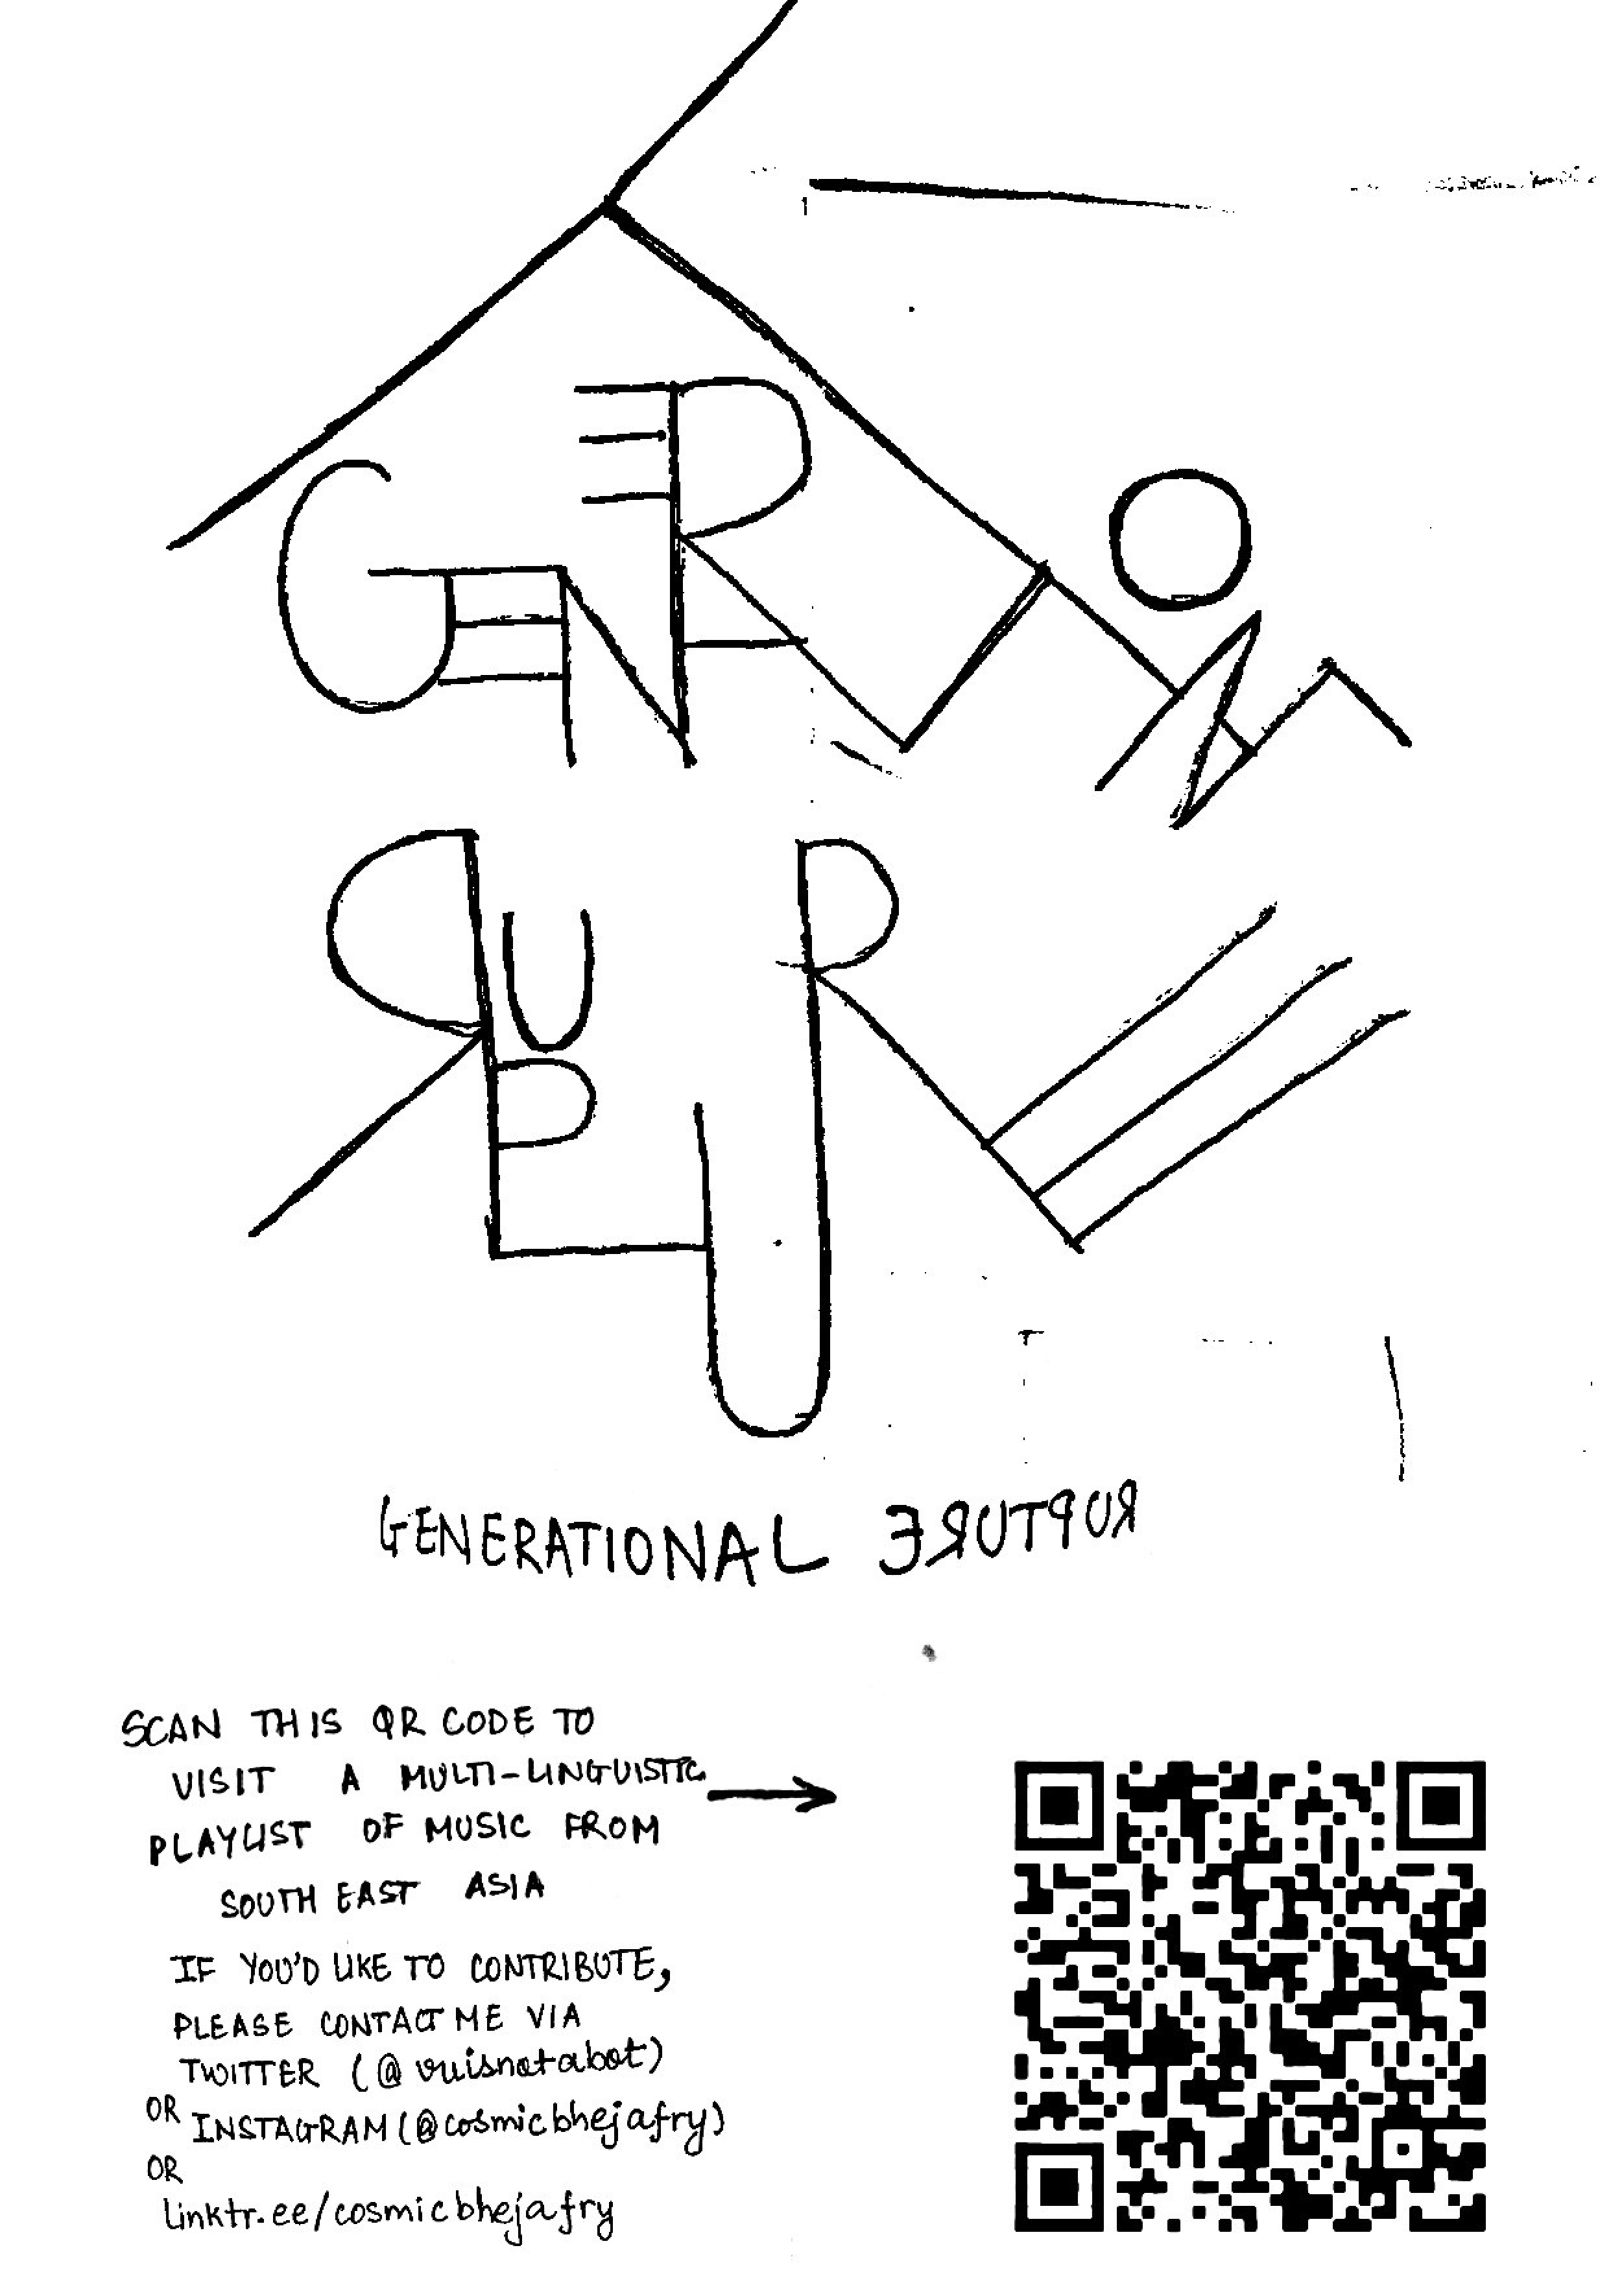 GENERATIONAL
RUPTURE
GENERATIONAL RUPTURE
SCAN THIS QR CODE TO
VISIT A MULTI-LINGUISTIC
PLAYLIST OF MUSIC FROM
SOUTH EAST ASIA
IF YOU'D LIKE TO CONTRIBUTE,
PLEASE CONTACT ME VIA
TWITTER (@vuisnotabot)
OR INSTAGRAM (@cosmicbhejafry)
OR
linktr.ee/cosmicbhejafry